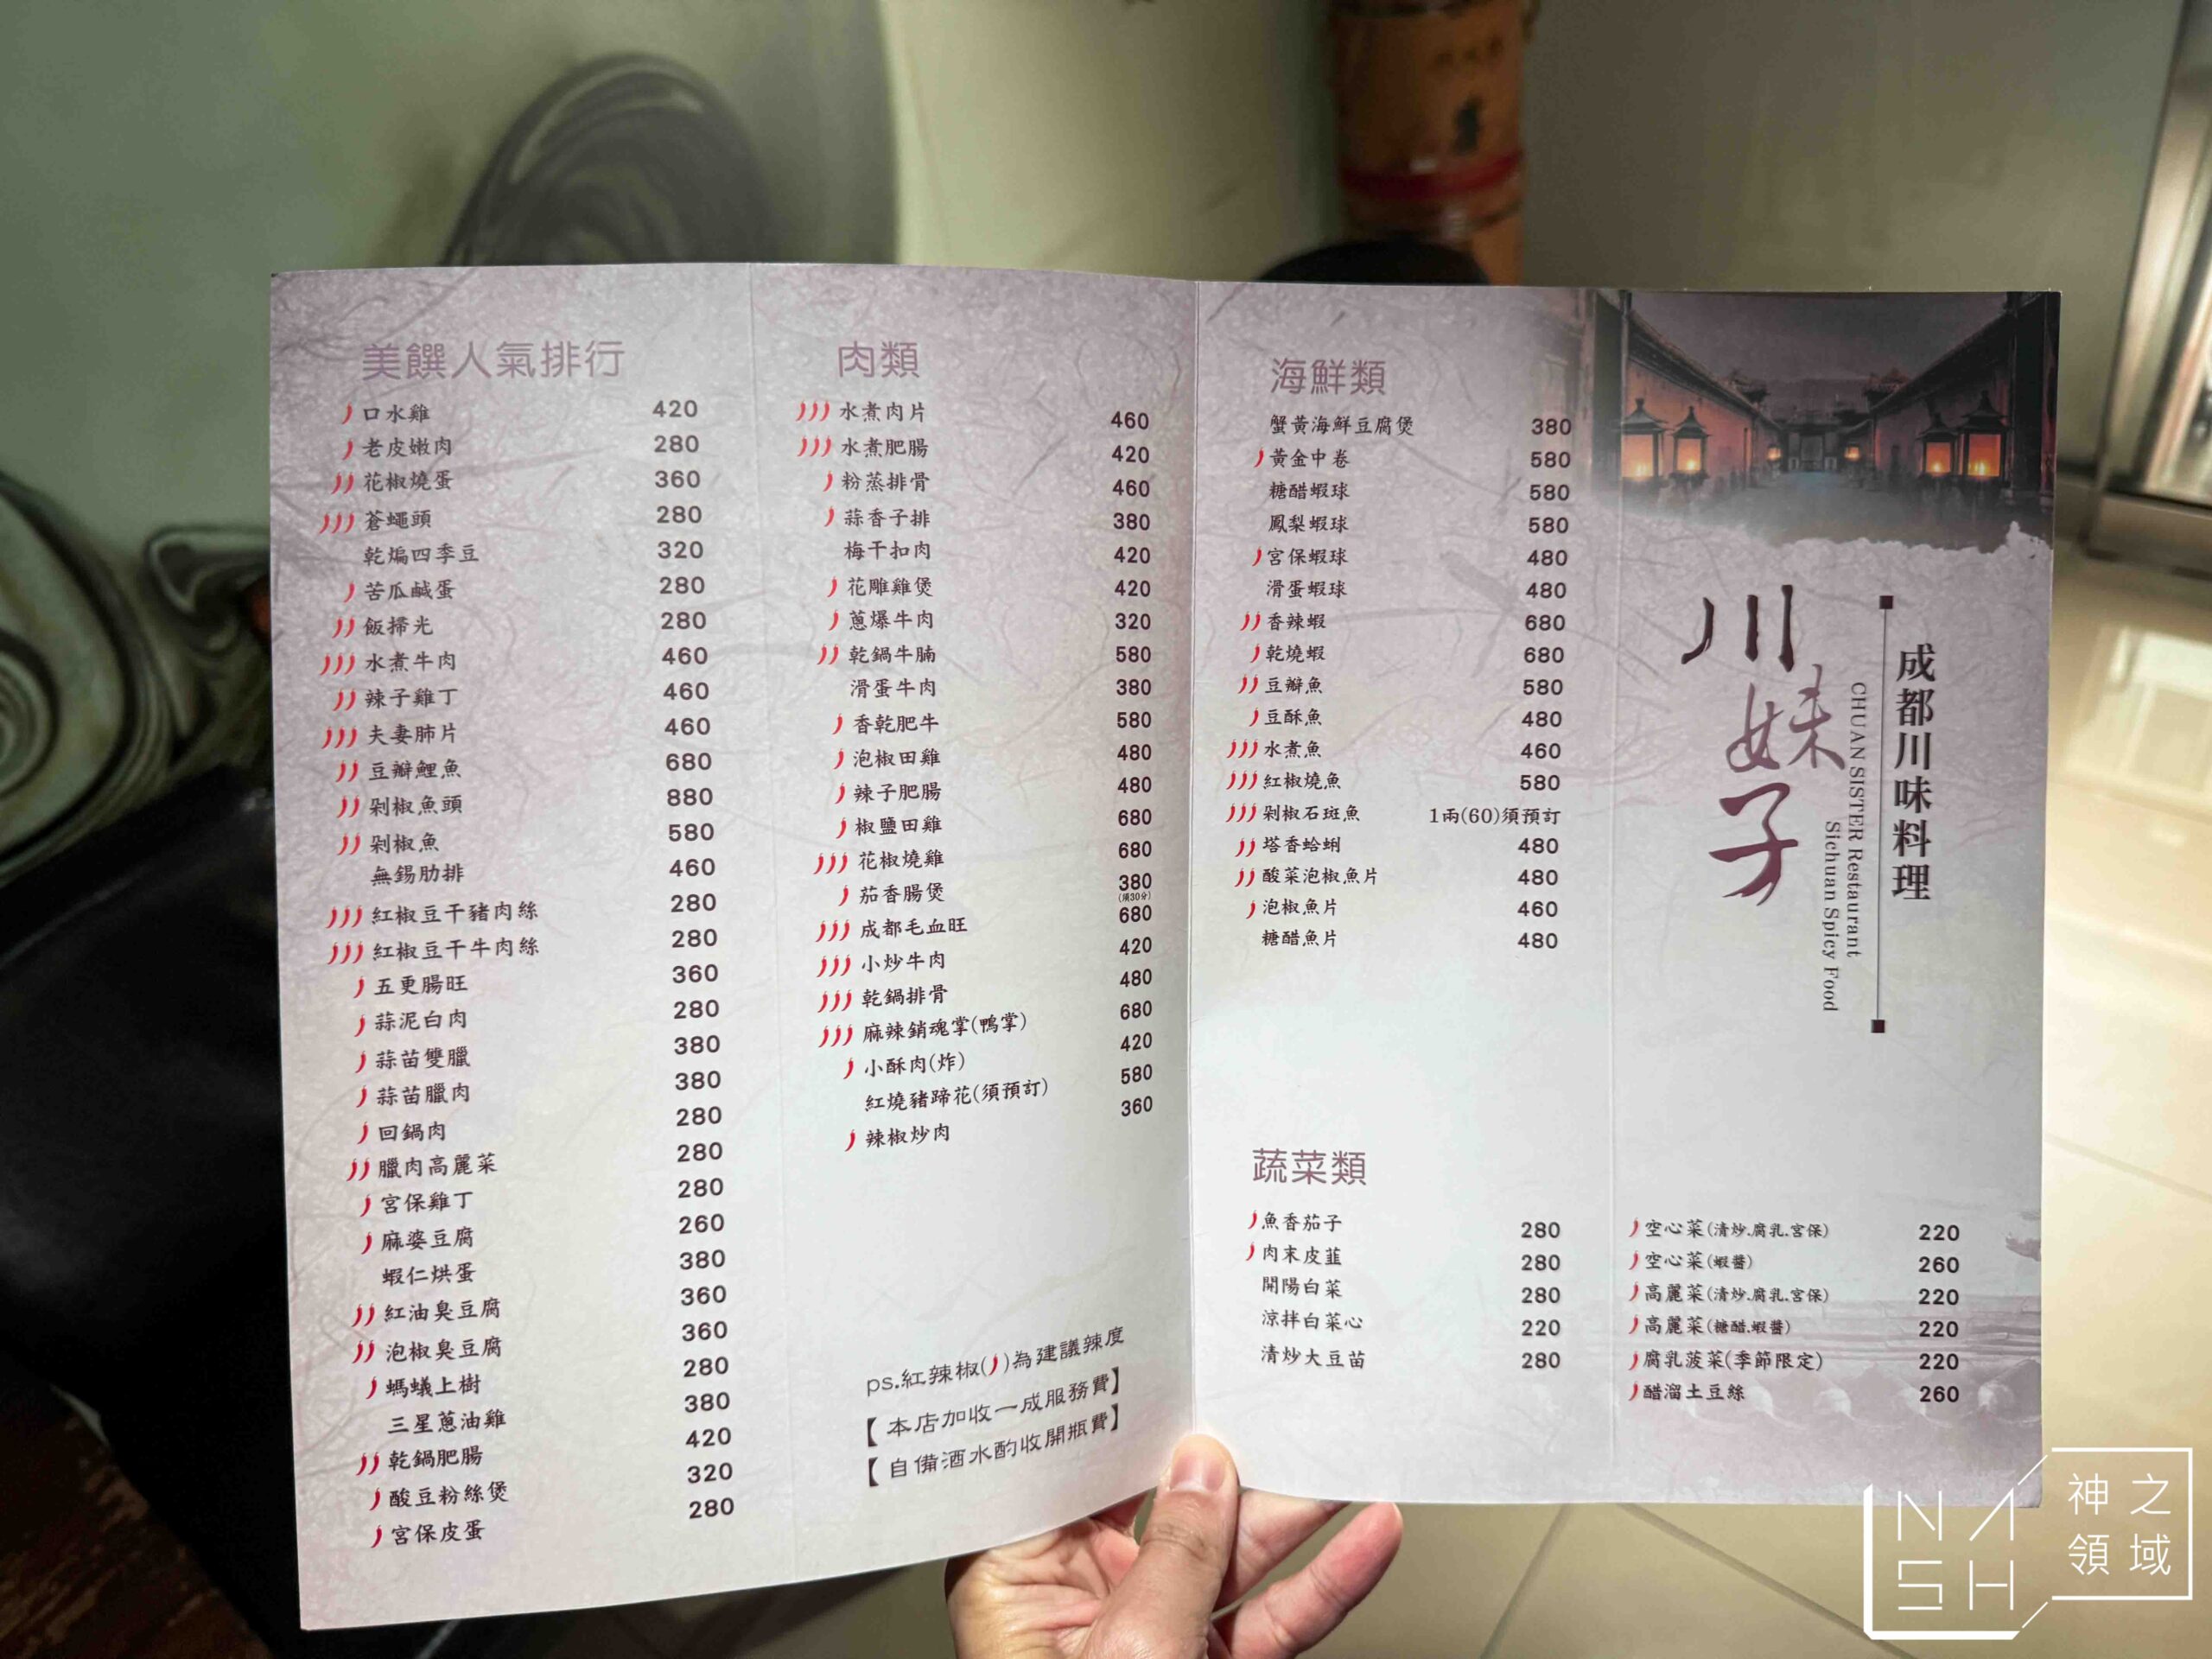 美饌人氣排行
口水雞 420
老皮嫩肉 280
花椒燒蛋 360
蒼蠅頭 280
乾煸四季豆 320
苦瓜鹹蛋 280
飯掃光 280
水煮牛肉 460
辣子雞丁 460
夫妻肺片 460
豆瓣鯉魚 680
剁椒魚頭 880
剁椒魚 580
無錫肋排 460
紅椒豆干豬肉絲 280
紅椒豆干牛肉絲 280
五更腸旺 360
蒜泥白肉 280
蒜苗雙臘 380
蒜苗臘肉 380
回鍋肉 280
臘肉高麗菜 280
宮保雞丁 280
麻婆豆腐 260
蝦仁烘蛋 380
紅油臭豆腐 360
泡椒臭豆腐 360
螞蟻上樹 280
三星蔥油雞 380
乾鍋肥腸 420
酸豆粉絲煲 320
宮保皮蛋 280
肉類
水煮肉片 460
水煮肥腸 420
粉蒸排骨 460
蒜香子排 380
梅干扣肉 420
花雕雞煲 420
蔥爆牛肉 320
乾鍋牛腩 580
滑蛋牛肉 380
香乾肥牛 580
泡椒田雞 480
辣子肥腸 480
椒鹽田雞 680
花椒燒雞 680
茄香腸煲 380
(須30分)
成都毛血旺 680
小炒牛肉 420
乾鍋排骨 480
麻辣銷魂掌(鴨掌) 680
小酥肉(炸) 420
紅燒豬蹄花(須預訂) 580
辣椒炒肉 360
ps.紅辣椒()為建議辣度
【本店加收一成服務費】
【自備酒水酌收開瓶費】
海鮮類
蟹黃海鮮豆腐煲 380
黃金中卷 580
糖醋蝦球 580
鳳梨蝦球 580
宮保蝦球 480
滑蛋蝦球 480
香辣蝦 680
乾燒蝦 680
豆瓣魚 580
豆酥魚 480
水煮魚 460
紅椒燒魚 580
剁椒石斑魚 1兩(60)須預訂
塔香蛤蜊 480
酸菜泡椒魚片 480
泡椒魚片 460
糖醋魚片 480
蔬菜類
魚香茄子 280
肉末皮韮 280
開陽白菜 280
涼拌白菜心 220
清炒大豆苗 280
空心菜(清炒.腐乳.宮保) 220
空心菜(蝦醬) 260
高麗菜(清炒.腐乳.宮保) 220
高麗菜(糖醋.蝦醬) 220
腐乳菠菜(季節限定) 220
醋溜土豆絲 260
成都川味料理
CHUAN SISTER Restaurant
Sichuan Spicy Food
川妹子
NASH
神之
領域